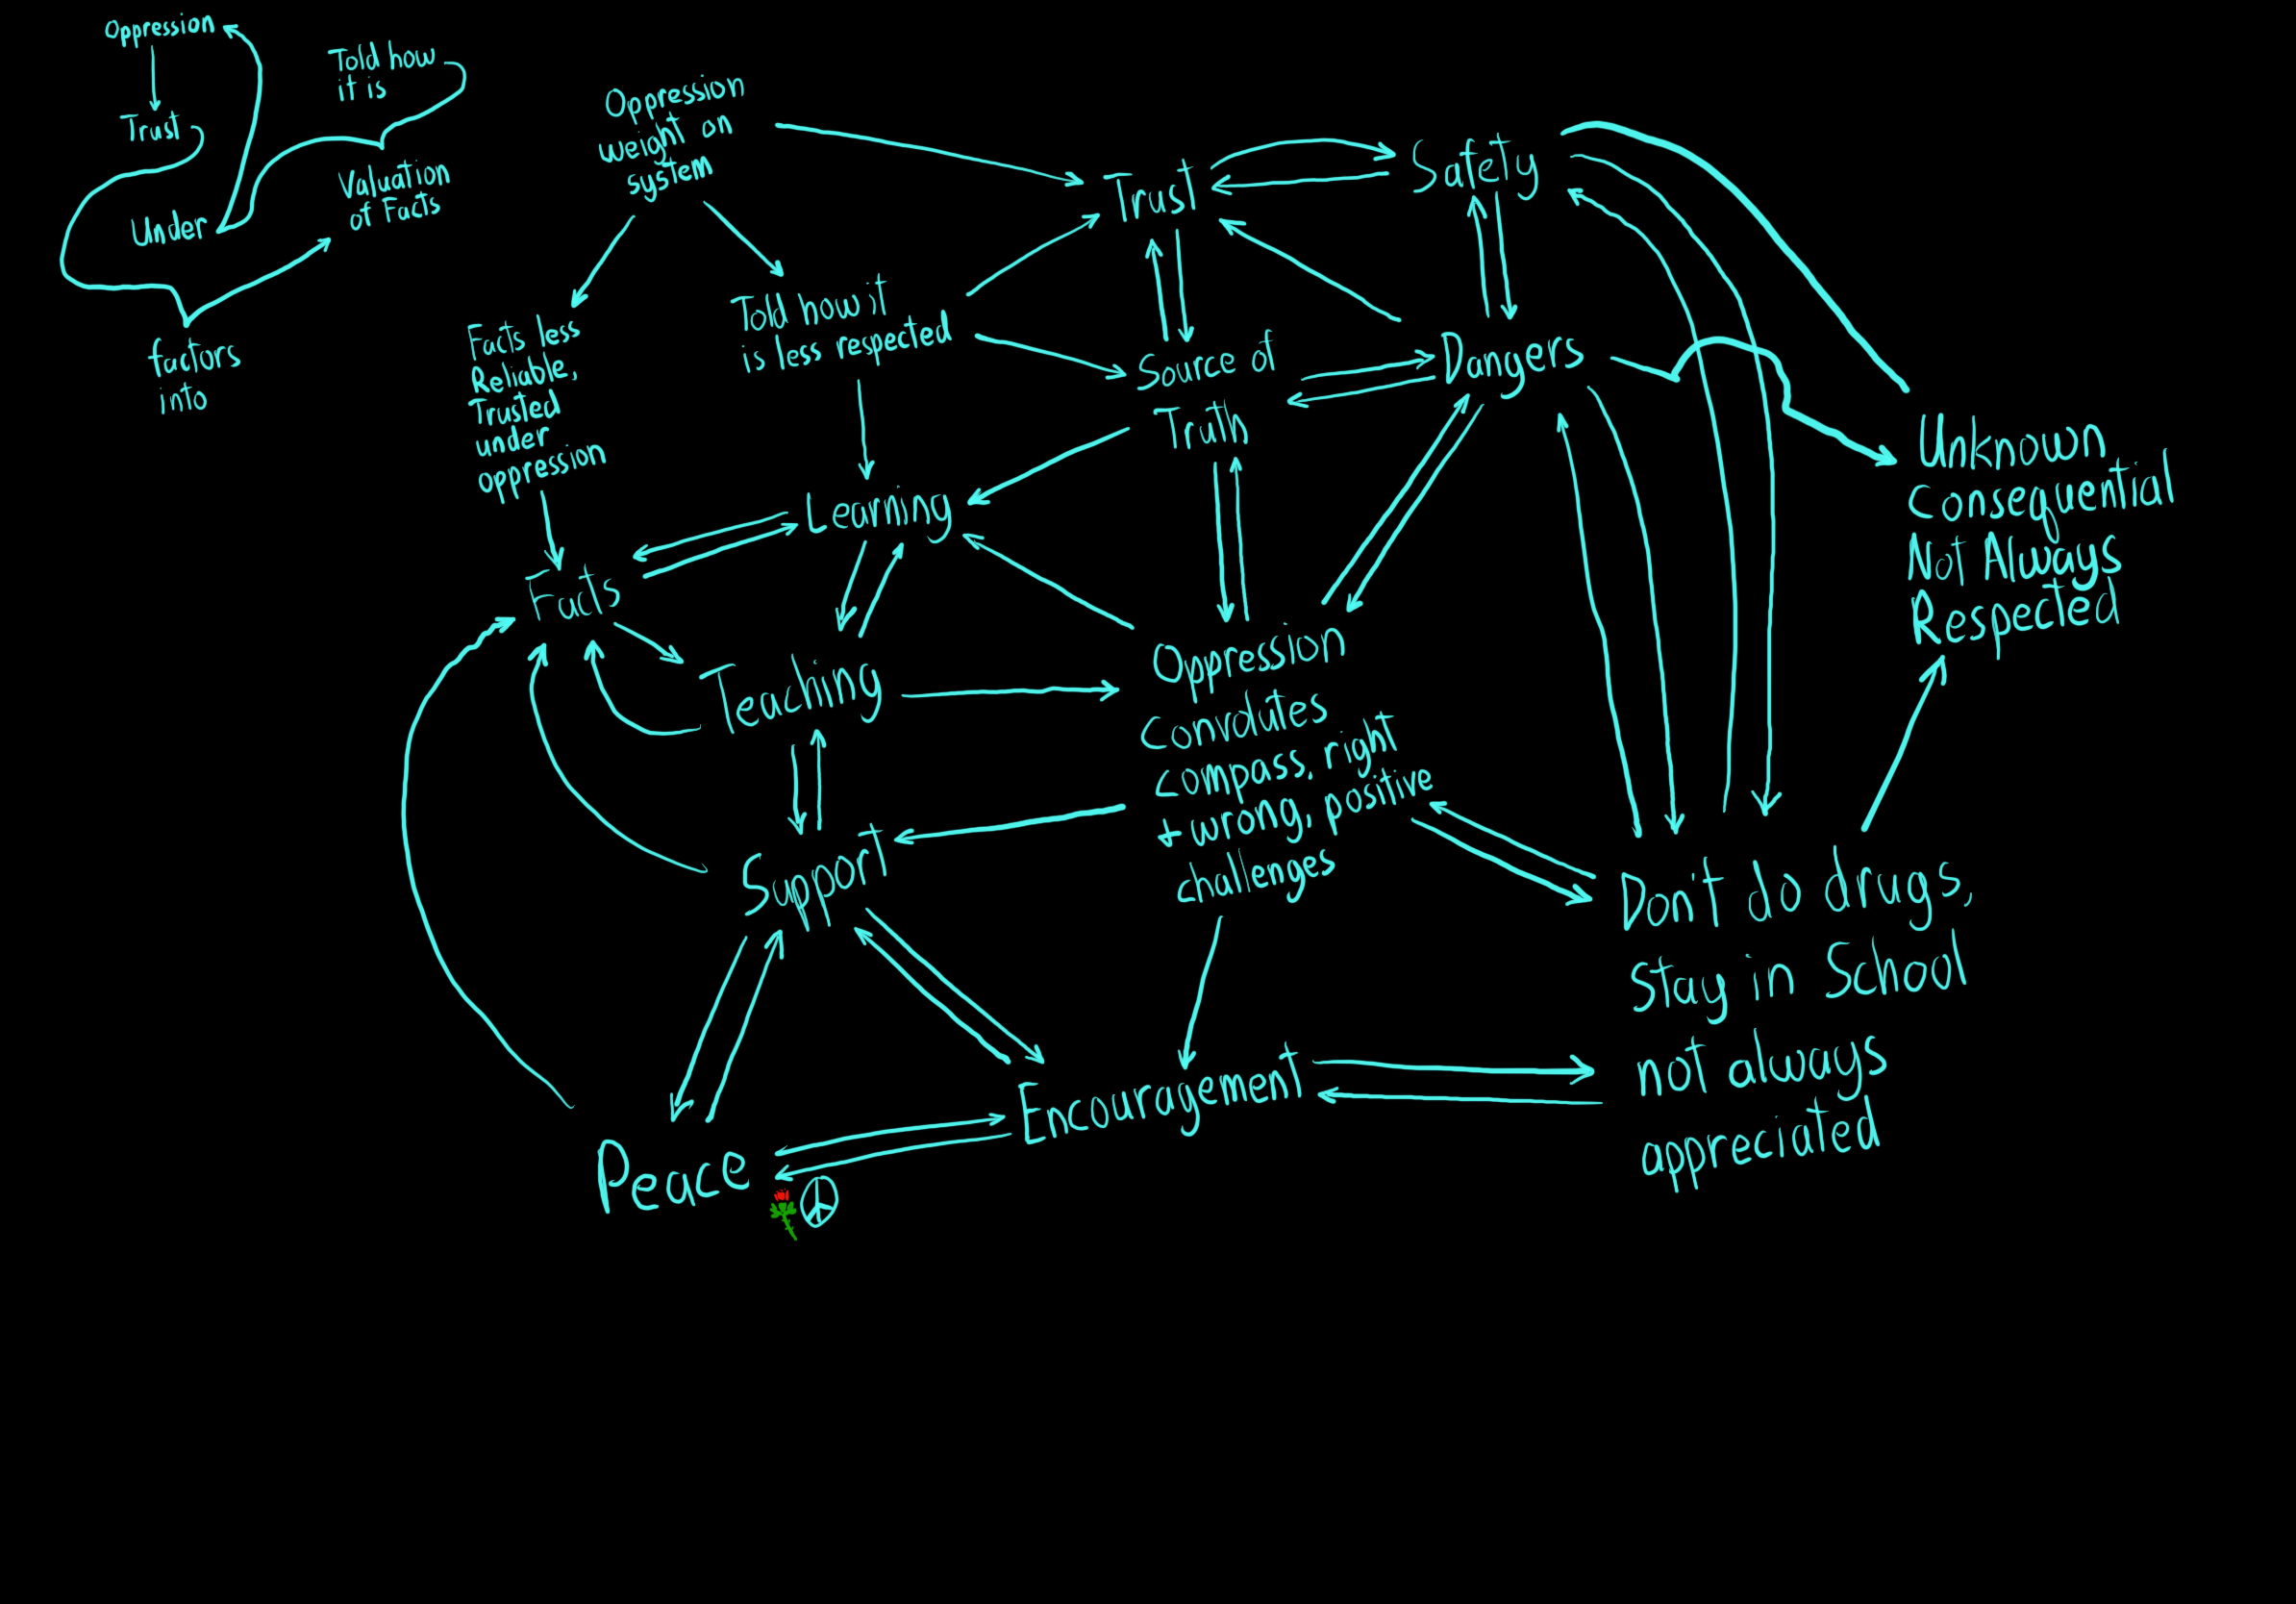 Oppression
Trust
Under
factors
into
Told how
it is
Valuation
of Facts
Oppression
weight on
system
Facts less
Reliable,
Trusted
under
oppression
Told how it
is less respected
Trust
Safety
Source of
Truth
Dangers
Unknown
Consequential
Not Always
Respected
Learning
Facts
Teaching
Oppression
convolutes
compass, right
+ wrong, positive
challenges
Support
Don't do drugs,
stay in School
not always
appreciated
Encouragement
Peace